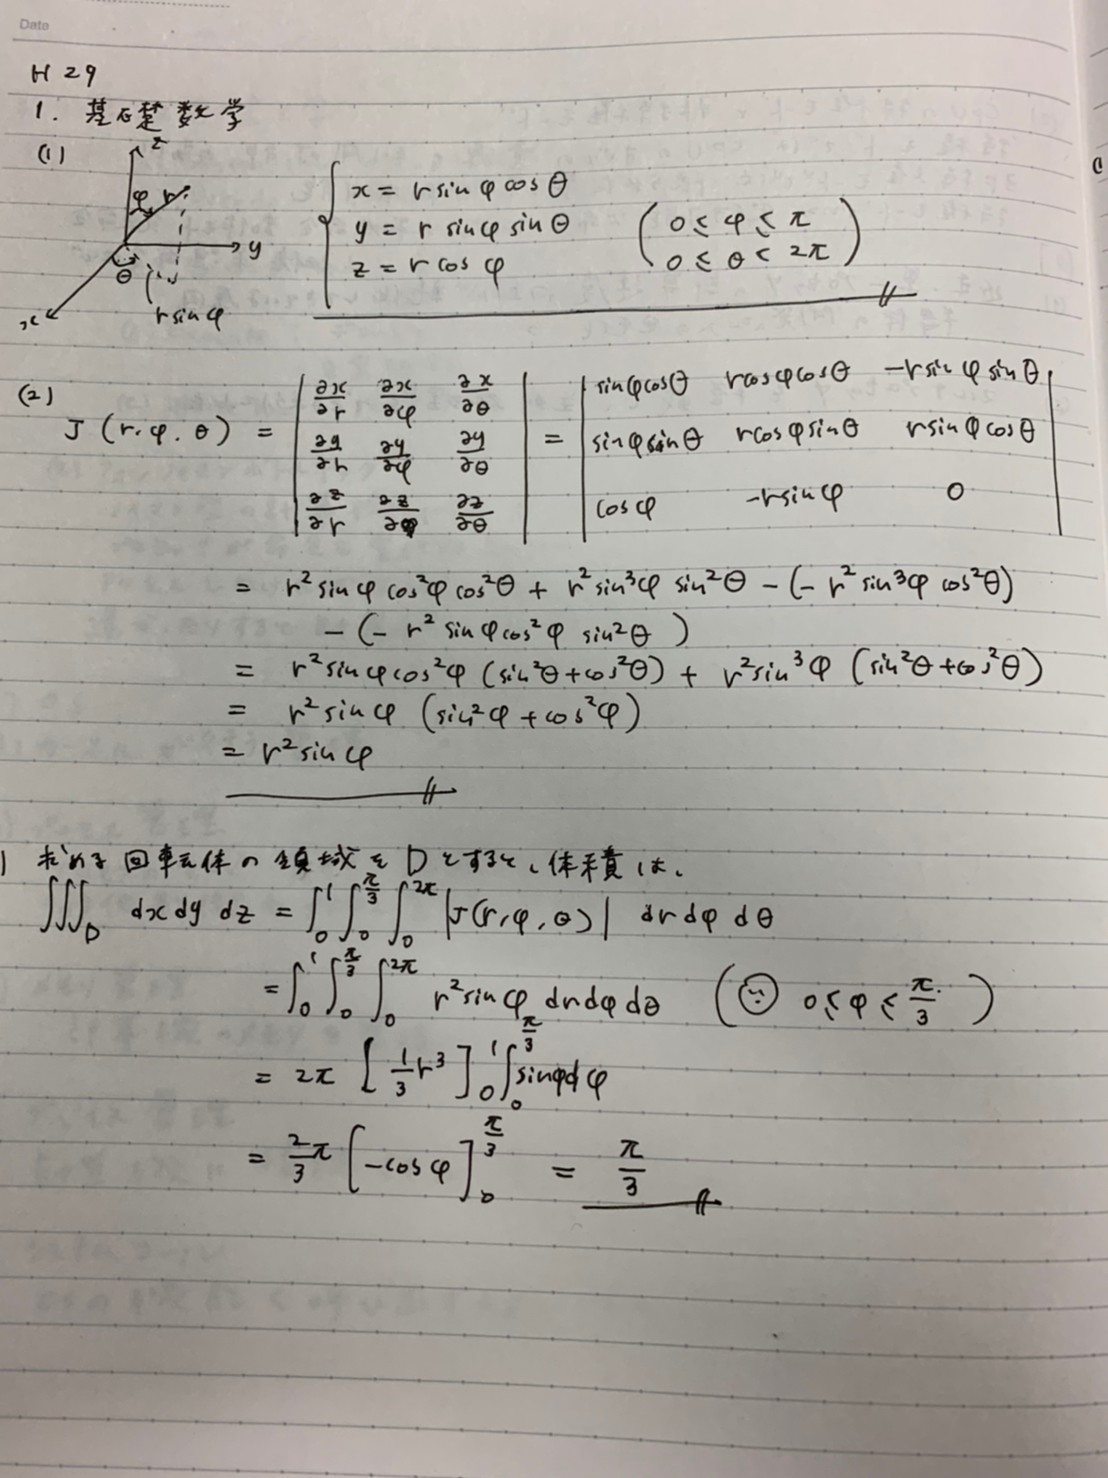 Date
H 29
1. 基礎数学
(1)
z
φ r
y
θ
x
r sin φ
x = r sin φ cos θ
y = r sin φ sin θ
z = r cos φ
( 0 ≤ φ ≤ π
0 ≤ θ < 2π )
(2)
J (r, φ, θ) = | ∂x/∂r ∂x/∂φ ∂x/∂θ | = | sin φ cos θ r cos φ cos θ −r sin φ sin θ |
| ∂y/∂r ∂y/∂φ ∂y/∂θ | | sin φ sin θ r cos φ sin θ r sin φ cos θ |
| ∂z/∂r ∂z/∂φ ∂z/∂θ | | cos φ −r sin φ 0 |
= r² sin φ cos²φ cos²θ + r² sin³φ sin²θ − (− r² sin³φ cos²θ)
− (− r² sin φ cos²φ sin²θ )
= r² sin φ cos²φ (sin²θ + cos²θ) + r² sin³φ (sin²θ + cos²θ)
= r² sin φ (sin²φ + cos²φ)
= r² sin φ
) 求める回転体の領域をDとすると、体積は、
∭_D dx dy dz = ∫₀¹ ∫₀^{π/3} ∫₀^{2π} |J(r, φ, θ)| dr dφ dθ
= ∫₀¹ ∫₀^{π/3} ∫₀^{2π} r² sin φ dr dφ dθ ( ∵ 0 ≤ φ ≤ π/3 )
= 2π [ 1/3 r³ ]₀¹ ∫₀^{π/3} sin φ dφ
= 2/3 π [ −cos φ ]₀^{π/3} = π/3